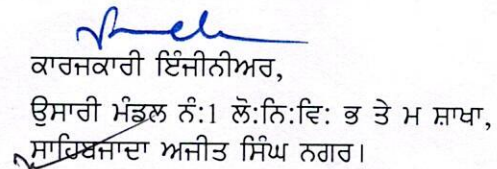 ਕਾਰਜਕਾਰੀ ਇੰਜੀਨੀਅਰ,
ਉਸਾਰੀ ਮੰਡਲ ਨੰ:1 ਲੋ:ਨਿ:ਵਿ: ਭ ਤੇ ਮ ਸ਼ਾਖਾ,
ਸਾਹਿਬਜਾਦਾ ਅਜੀਤ ਸਿੰਘ ਨਗਰ।